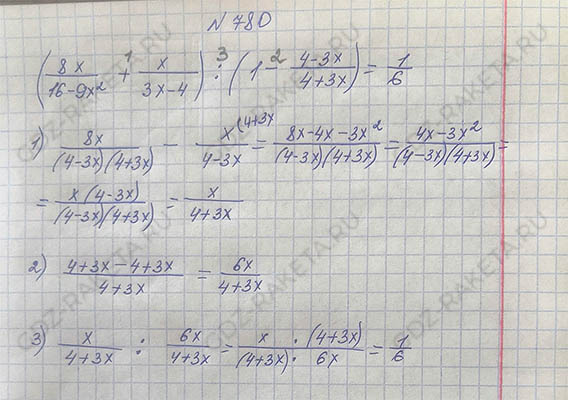 N 780
(8x/(16-9x²) + x/(3x-4)) : (1 - (4-3x)/(4+3x)) = 1/6
1 3 2
1) 8x/((4-3x)(4+3x)) - x(4+3x/(4-3x) = (8x-4x-3x²)/((4-3x)(4+3x)) = (4x-3x²)/((4-3x)(4+3x)) =
= x(4-3x)/((4-3x)(4+3x)) = x/(4+3x)
2) (4+3x-4+3x)/(4+3x) = 6x/(4+3x)
3) x/(4+3x) : 6x/(4+3x) = x·(4+3x)/((4+3x)·6x) = 1/6
GDZ-RAKETA.RU